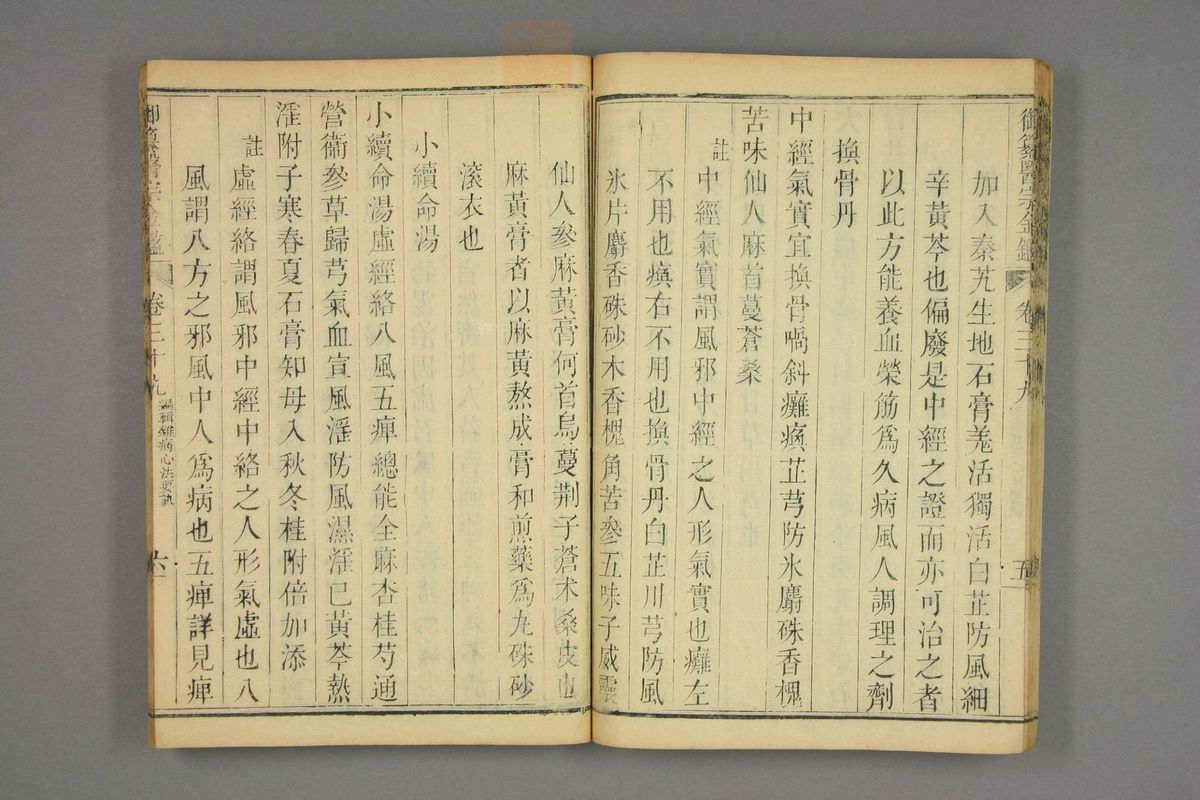 御纂醫宗金鑑 卷三十九 五
加入秦艽生地石膏羗活獨活白芷防風細
辛黃芩也偏廢是中經之證而亦可治之者
以此方能養血榮筋爲久病風人調理之劑
換骨丹
中經氣實宜換骨喎斜癱瘓芷芎防氷麝硃香槐
苦味仙人麻首蔓蒼桑
註中經氣實謂風邪中經之人形氣實也癱左
不用也瘓右不用也換骨丹白芷川芎防風
氷片麝香硃砂木香槐角苦參五味子威靈
仙人參麻黃膏何首烏蔓荆子蒼朮桑皮也
麻黃膏者以麻黃熬成膏和煎藥爲丸硃砂
滚衣也
小續命湯
小續命湯虛經絡八風五痺總能全麻杏桂芍通
營衞參草歸芎氣血宣風淫防風濕淫己黃芩熱
淫附子寒春夏石膏知母入秋冬桂附倍加添
註虛經絡謂風邪中經中絡之人形氣虛也八
風謂八方之邪風中人爲病也五痺詳見痺
御纂醫宗金鑑 卷三十九 編輯雜病心法要訣 六